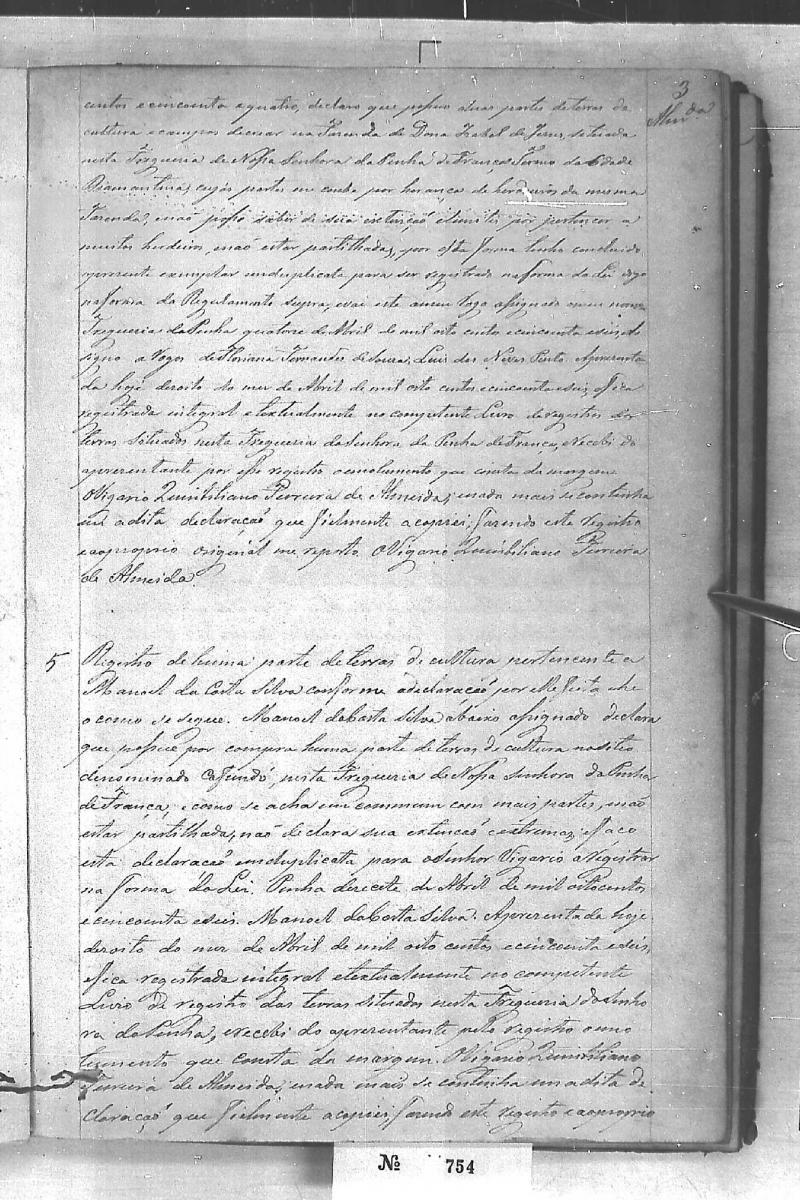 3
Almda
centos ecincoenta equatro, declaro que possuo duas partes de terras de
cultura ecampos de crear na Fazenda de Dona Izabel de Jesus, situada
nesta Freguezia de Nossa Senhora da Penha de França Termo da Cidade
Diamantina, cujas partes me coube por herança de herdeiros da mesma
Fazenda, enaõ posso saber de sua extençaõ elimites por pertencer a
muitos herdeiros, enaõ estar partilhada, por esta forma tenho concluido
opresente exemplar emduplicata para ser registrado naforma da Lei digo
naforma do Regulamento supra, evai este a meu rogo assignado
Freguezia da Penha quatorze de Abril de mil oito centos ecincoenta eseis. As
signo a Rogo de Floriana Fernandes de Souza, Luis das Neves Pinto. Apresenta
da hoje dezoito do mez de Abril de mil oito centos ecincoenta eseis, efica
registrada integral etextualmente no competente Livro de registro das
terras situadas nesta Freguezia da Senhora da Penha de França, erecebi do
apresentante por este registro oemolumento que consta da margem.
O Vigario Quintiliano Ferreira de Almeida; enada mais se continha
em a dita declaraçaõ que fielmente acopiei, fazendo este registro
eaoproprio original me reporto. O Vigario Quintiliano Ferreira
de Almeida.
5 Registro de huma parte de terras de cultura pertencente a
Manoel da Costa Silva conforme adeclaraçaõ por elle feita ehe
o como se segue. Manoel da Costa Silva abaixo assignado declara
que possue por compra huma parte de terras de cultura nositio
denominado Cafundó, nesta Freguezia de Nossa Senhora da Penha
de França, e como se acha em commum com mais partes, enaõ
estar partilhada, naõ declara sua extencaõ eextremas, e faço
esta declaracaõ emduplicata para oSenhor Vigario a Registrar
na forma da Lei. Penha dezecete de Abril de mil oitocentos
ecincoenta eseis. Manoel da Costa Silva. Apresentada hoje
dezoito do mez de Abril de mil oito centos ecincoenta eseis,
efica registrada integral etextualmente no competente
Livro de registro das terras situadas nesta Freguezia da Senho
ra da Penha, erecebi do apresentante pelo registro oemo
lumento que consta da margem. O Vigario Quintiliano
Ferreira de Almeida, enada mais se continha em adita de
claraçaõ que fielmente acopiei, fazendo este registro eaoproprio
№ 754